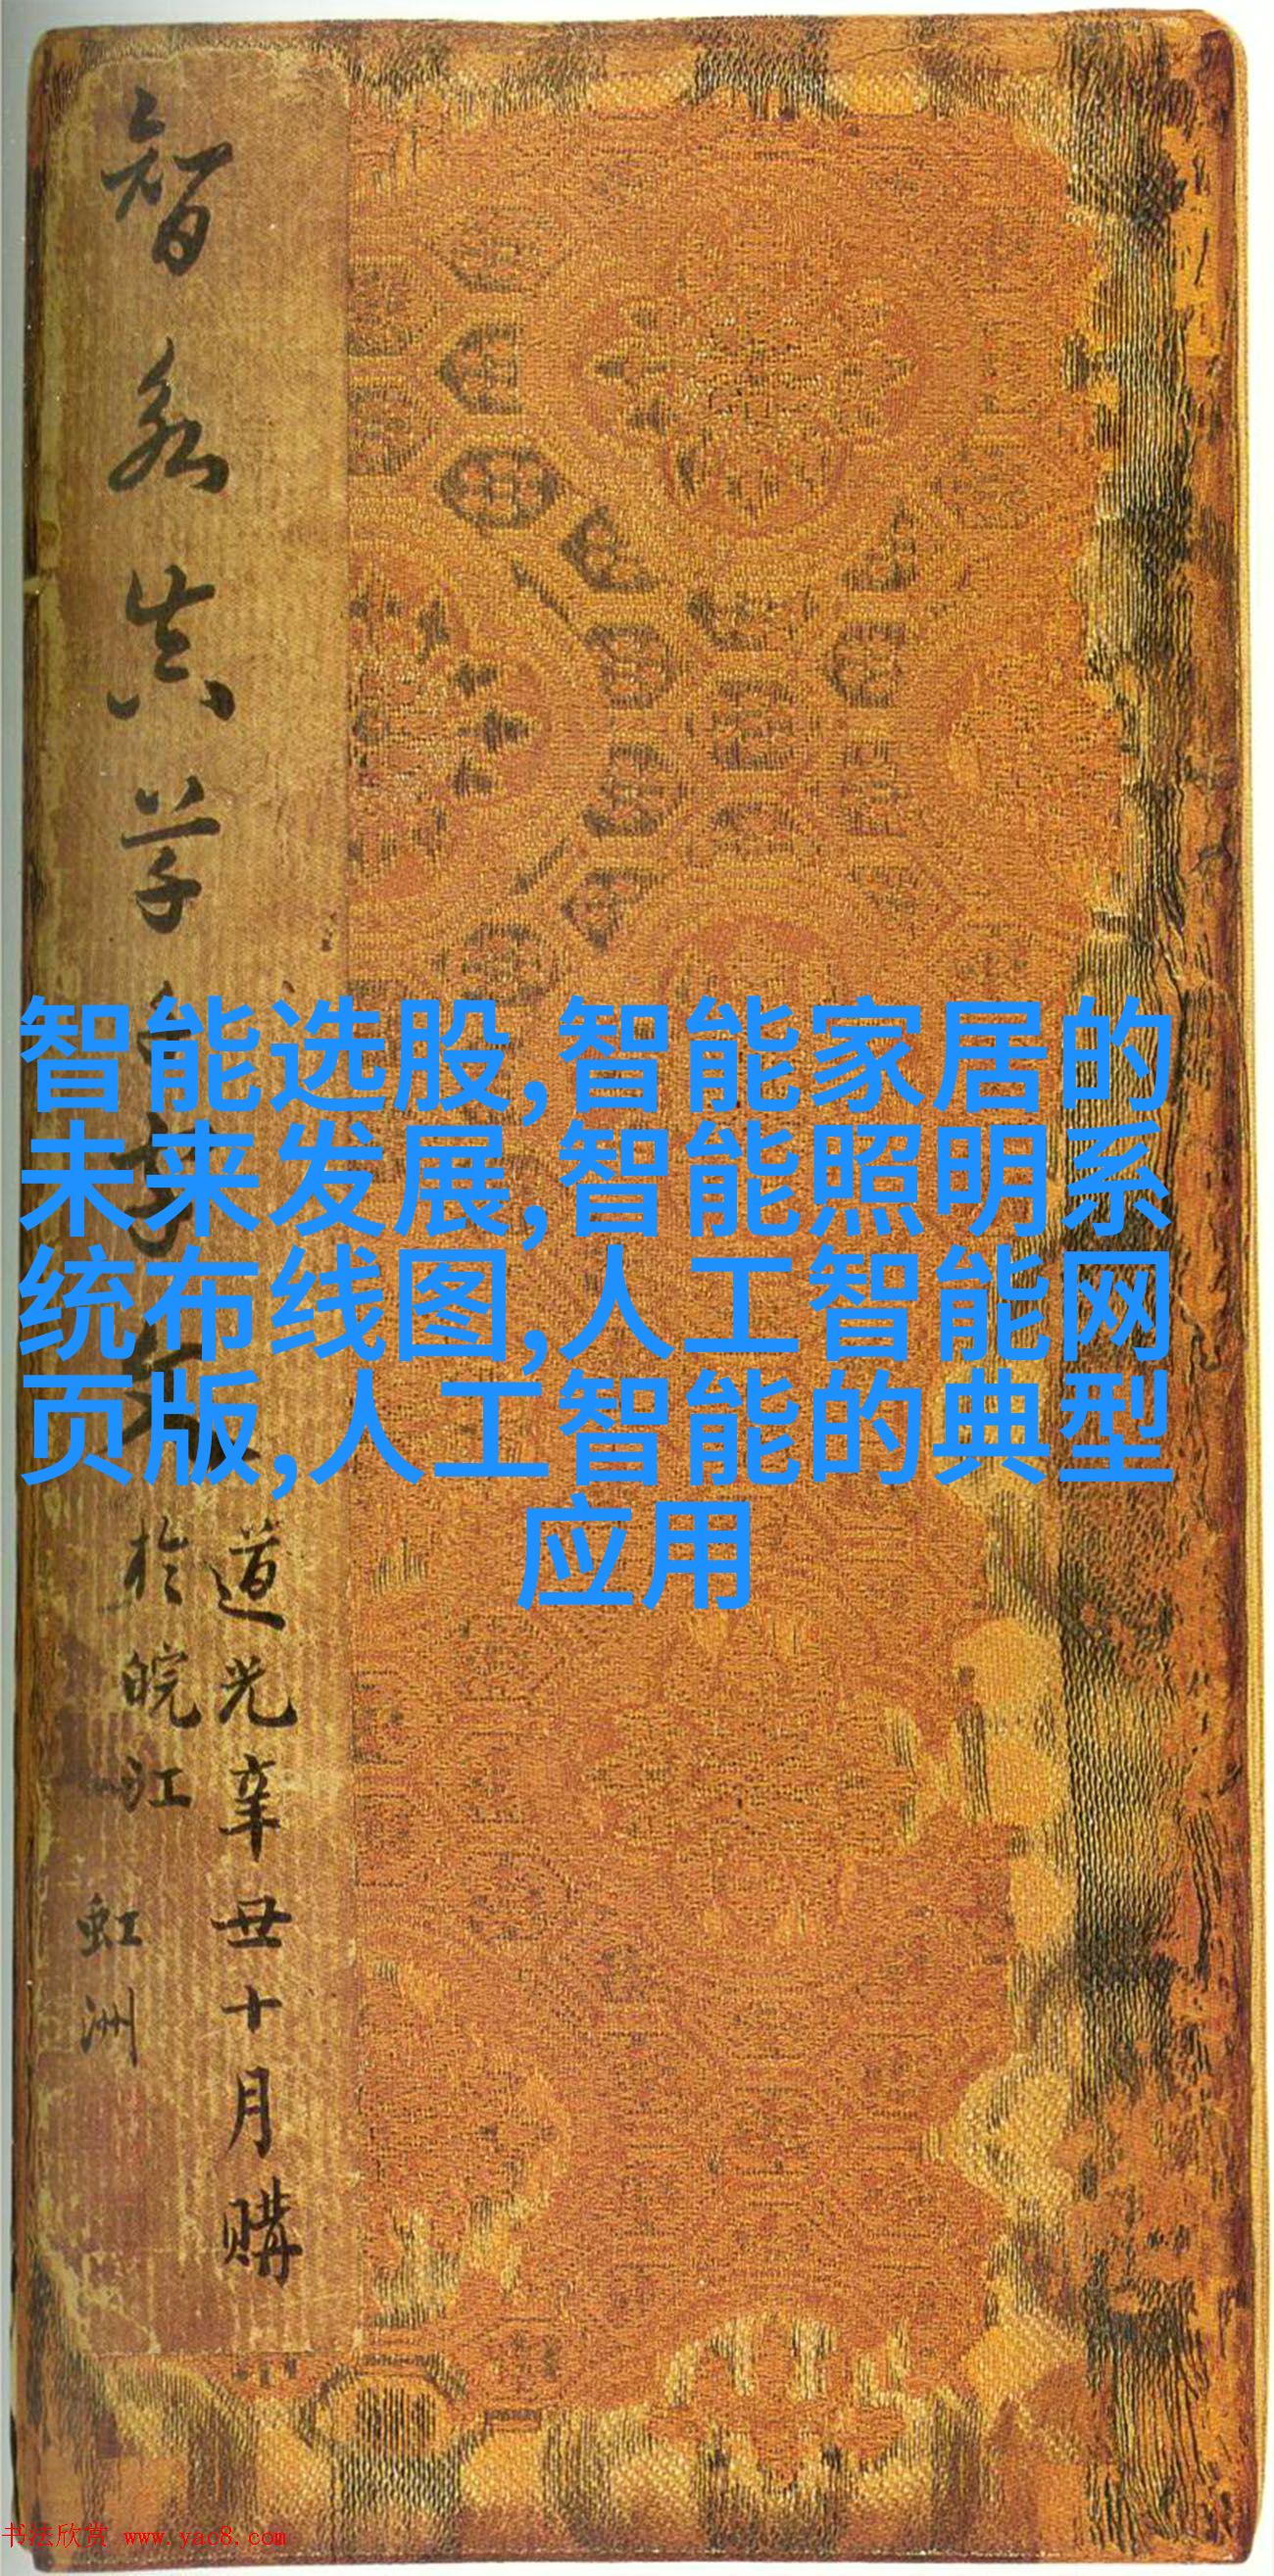 智永真草
道光辛丑十月購
於皖江
虹洲
智能选股,智能家居的
未来发展,智能照明系
统布线图,人工智能网
页版,人工智能的典型
应用
书法欣赏 www.yac8.com